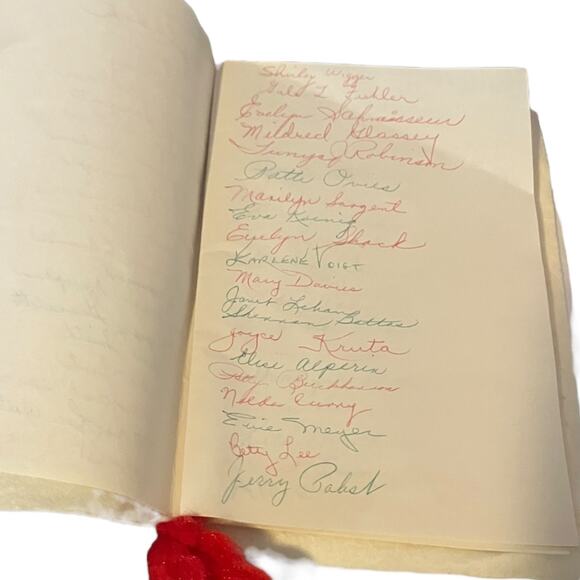 Shirley Wigger
L. Fiehler
Evelyn Lafrasseur
Mildred Glassey
Robinson
Patti Ovies
Marilyn Sargent
Eva Koenig
Evelyn Shack
KARLENE VOIGT
Mary Davies
Janet Lehan
Shennan Battas
Joyce Kruta
Elise Alperin
Nelda Curry
Evie Meyer
Betty Lee
Jerry Pabst